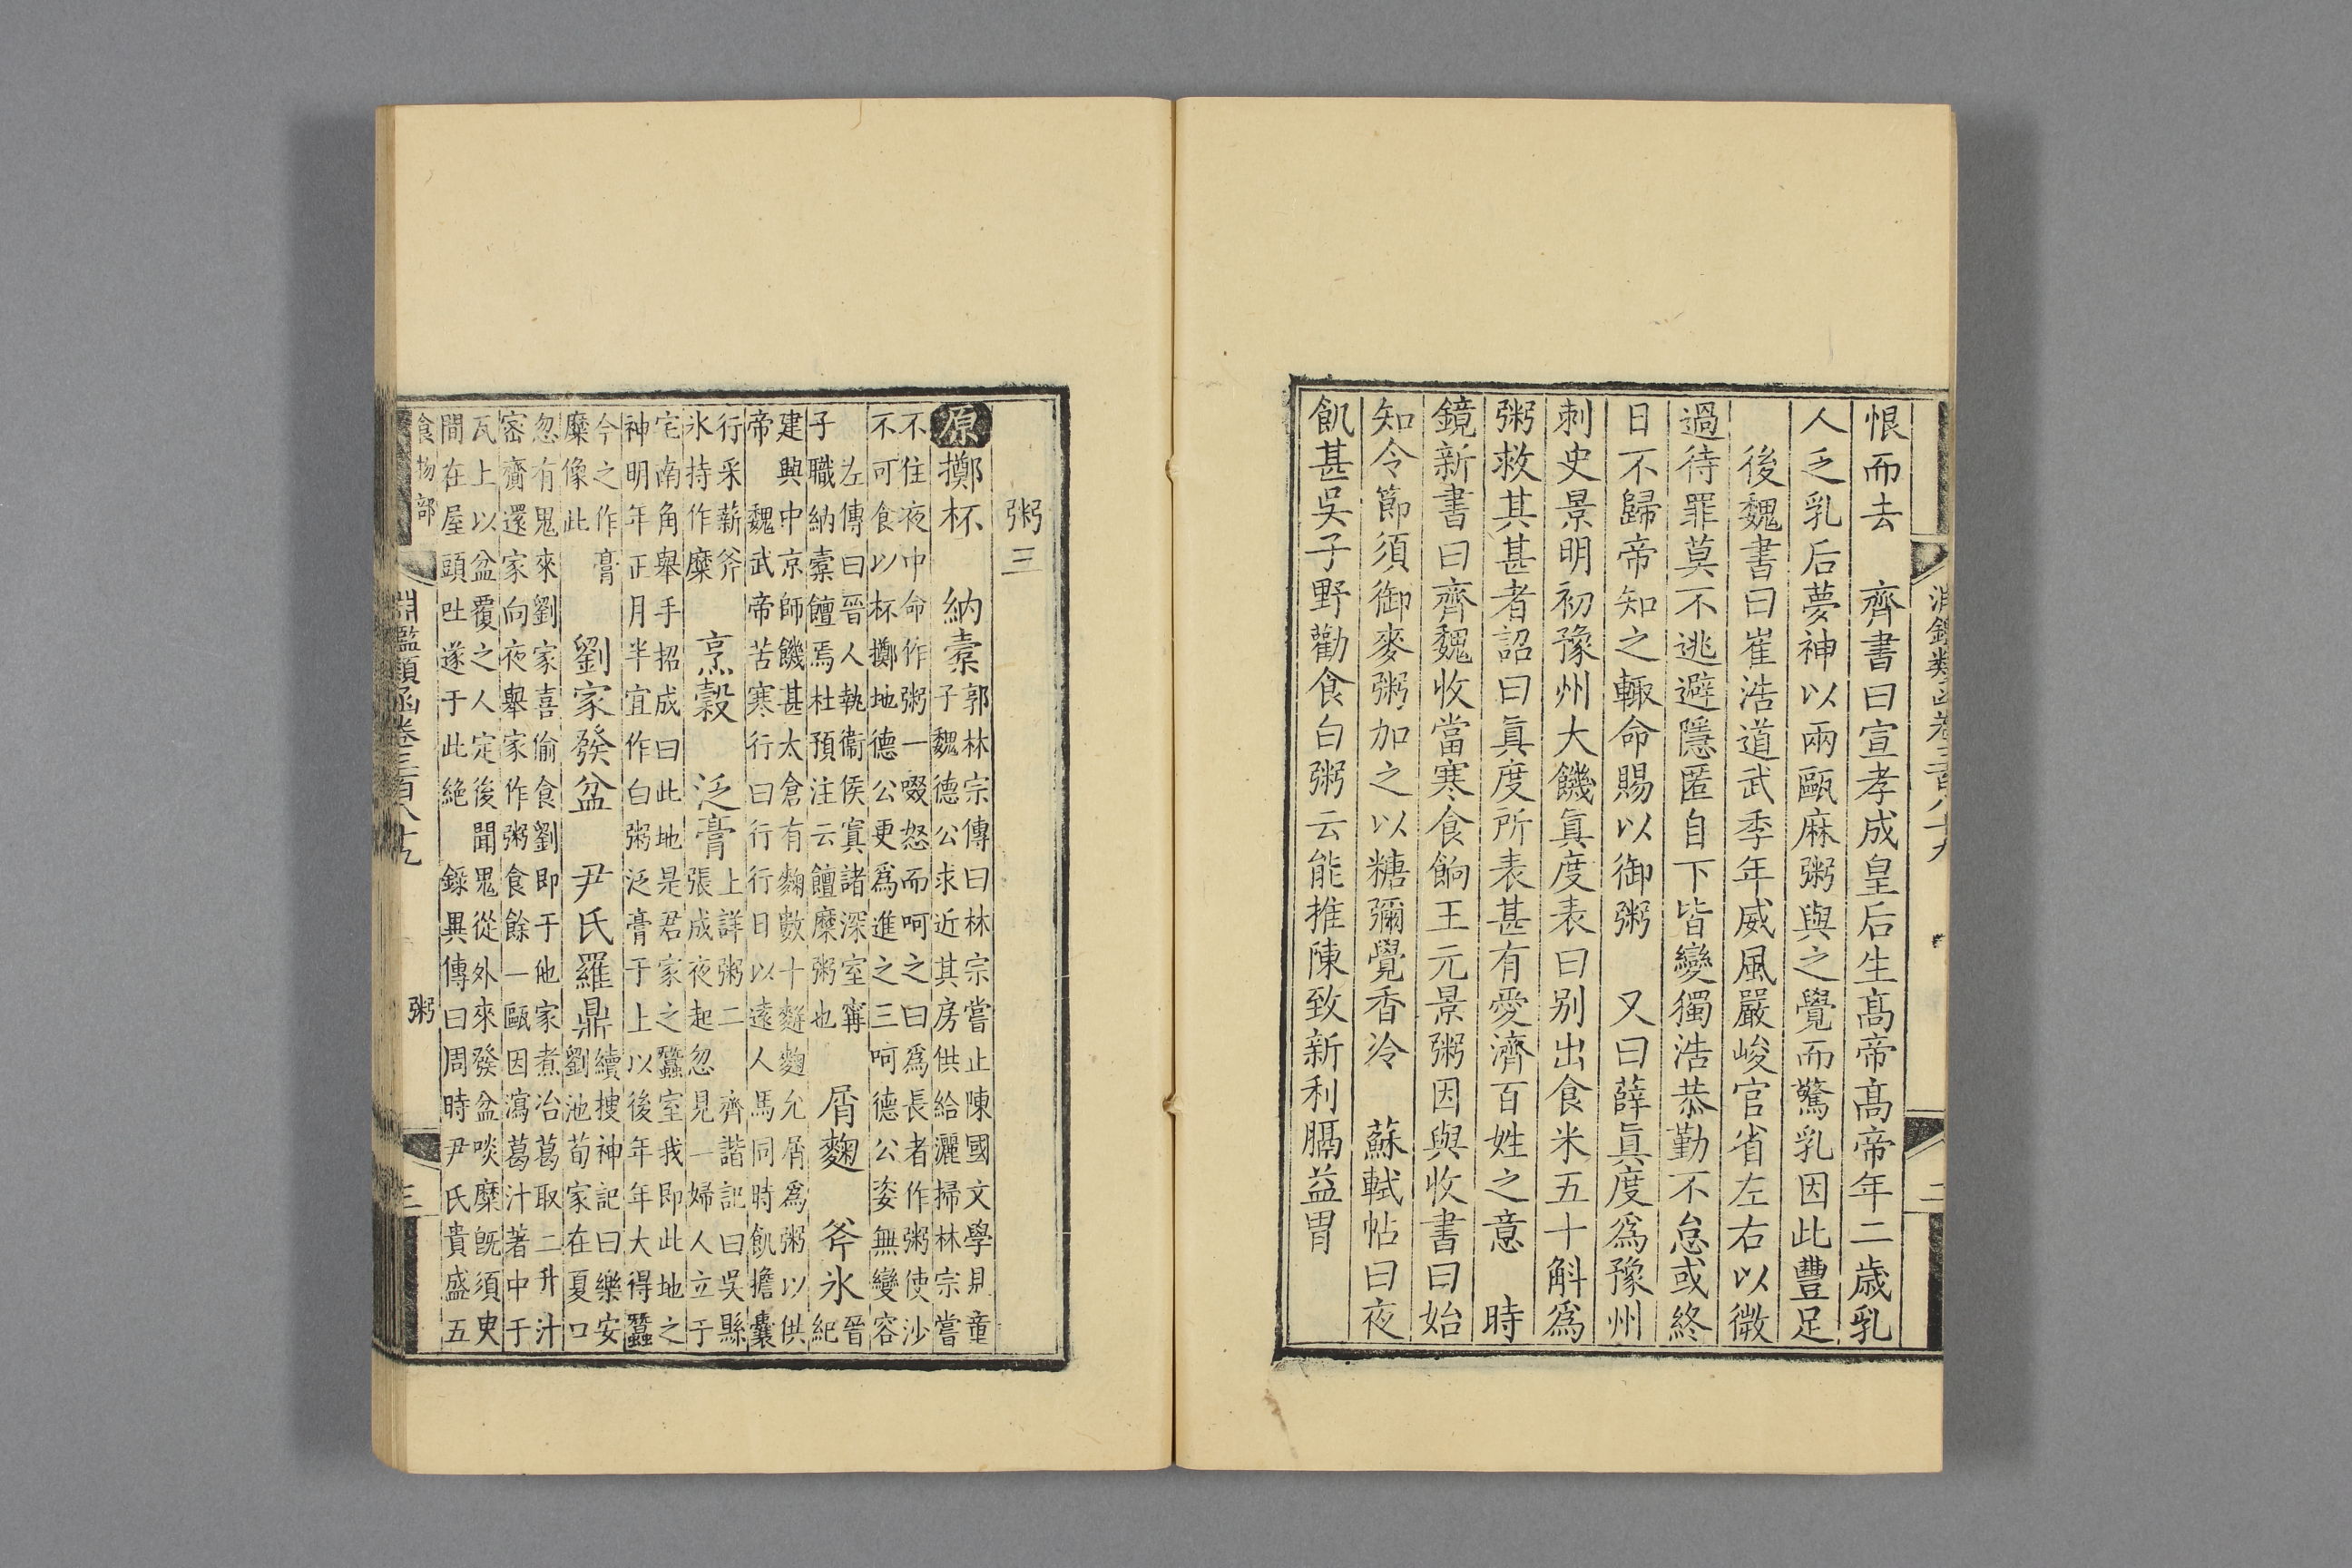 淵鑑類函卷三百八十九 二
恨而去　齊書曰宣孝成皇后生髙帝髙帝年二歲乳
人乏乳后夢神以兩甌麻粥與之覺而驚乳因此豐足
後魏書曰崔浩道武季年威風嚴峻官省左右以微
過待罪莫不逃避隱匿自下皆變獨浩恭勤不怠或終
日不歸帝知之輙命賜以御粥　又曰薛眞度爲豫州
刺史景明初豫州大饑眞度表曰别出食米五十斛爲
粥救其甚者詔曰眞度所表甚有愛濟百姓之意　時
鏡新書曰齊魏收當寒食餉王元景粥因與收書曰始
知令節須御麥粥加之以糖彌覺香冷　蘇軾帖曰夜
飢甚吳子野勸食白粥云能推陳致新利膈益胃
粥三
原擲杯　納橐
郭林宗傳曰林宗嘗止陳國文學見童
子魏德公求近其房供給灑掃林宗嘗
不住夜中命作粥一啜怒而呵之曰爲長者作粥使沙
不可食以杯擲地德公更爲進之三呵德公姿無變容
左傳曰晉人執衞侯寘諸深室甯
子職納橐饘焉杜預注云饘糜粥也
屑麴　斧氷
晉
紀
建興中京師饑甚太倉有麴數十䴵麴允屑爲粥以供
帝　魏武帝苦寒行曰行行日以遠人馬同時飢擔囊
行采薪斧
氷持作糜
烹穀　泛膏
上詳粥二　齊諧記曰吳縣
張成夜起忽見一婦人立于
宅南角舉手招成曰此地是君家之蠶室我即此地之
神明年正月半宜作白粥泛膏于上以後年年大得蠶
今之作膏
糜像此
劉家發盆　尹氏羅鼎
續搜神記曰樂安
劉池苟家在夏口
忽有鬼來劉家喜偷食劉即于他家煮冶葛取二升汁
密齎還家向夜舉家作粥食餘一甌因瀉葛汁著中于
瓦上以盆覆之人定後聞鬼從外來發盆啖糜旣須臾
間在屋頭吐遂于此絶　錄異傳曰周時尹氏貴盛五
食物部 淵鑑類函卷三百八十九 粥 三